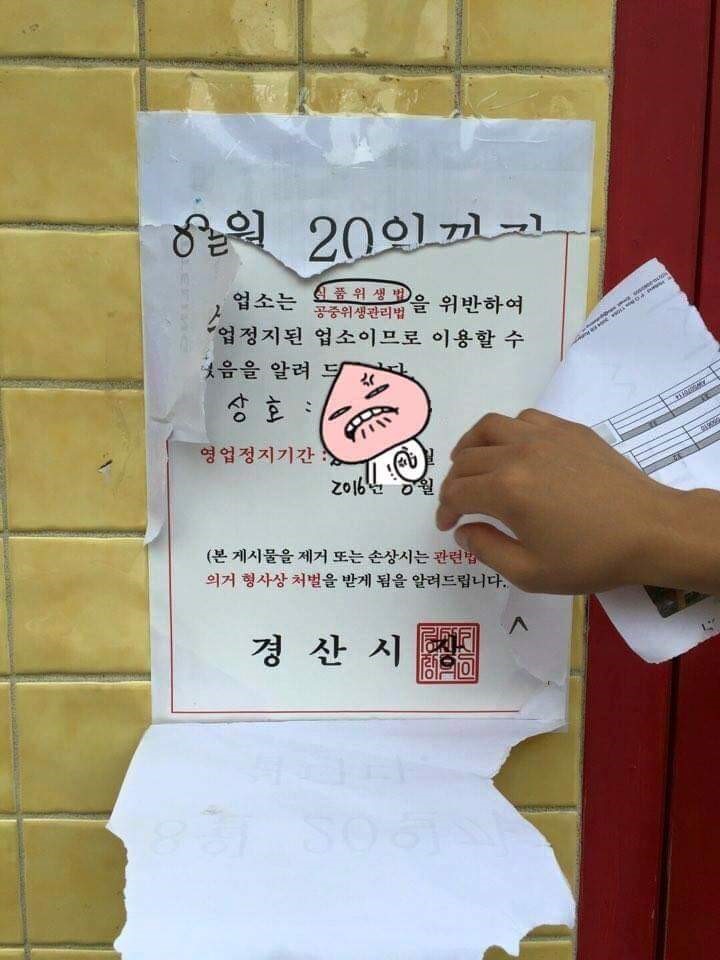 8월 20일까지
업소는 식품위생법
공중위생관리법 을 위반하여
업정지된 업소이므로 이용할 수
없음을 알려 드립니다
상호 :
영업정지기간 :
2016년 8월
(본 게시물을 제거 또는 손상시는 관련법
의거 형사상 처벌을 받게 됨을 알려드립니다.
경산시장